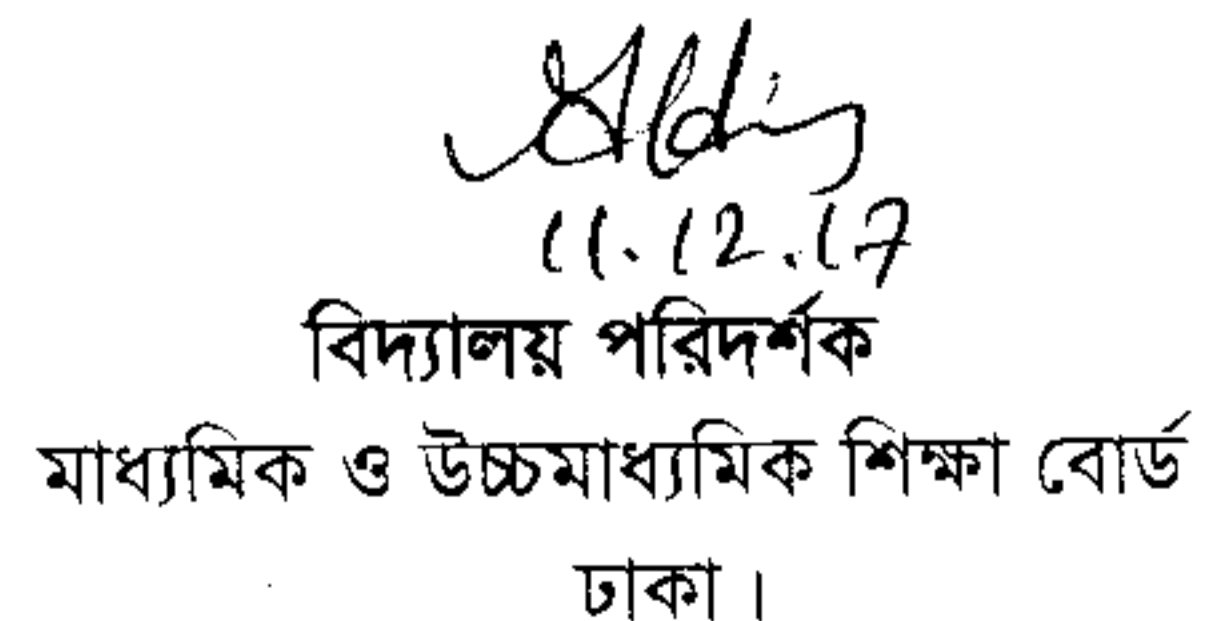 11.12.17
বিদ্যালয় পরিদর্শক
মাধ্যমিক ও উচ্চমাধ্যমিক শিক্ষা বোর্ড
ঢাকা।